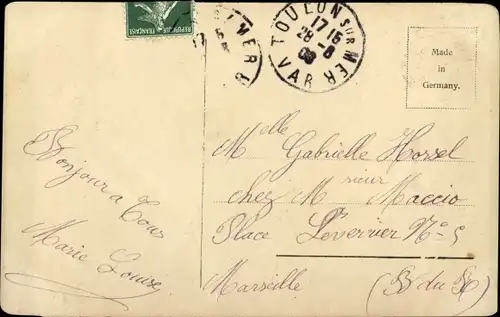 RÉPUBLIQUE FRANÇAISE
TOULON SUR MER
17 15
28 -8
VAR
Made
in
Germany.
Bonjour a Tous
Marie Louise
Melle Gabrielle Horsel
chez Monsieur Maccio
Place Leverrier No 5
Marseille (B du R)